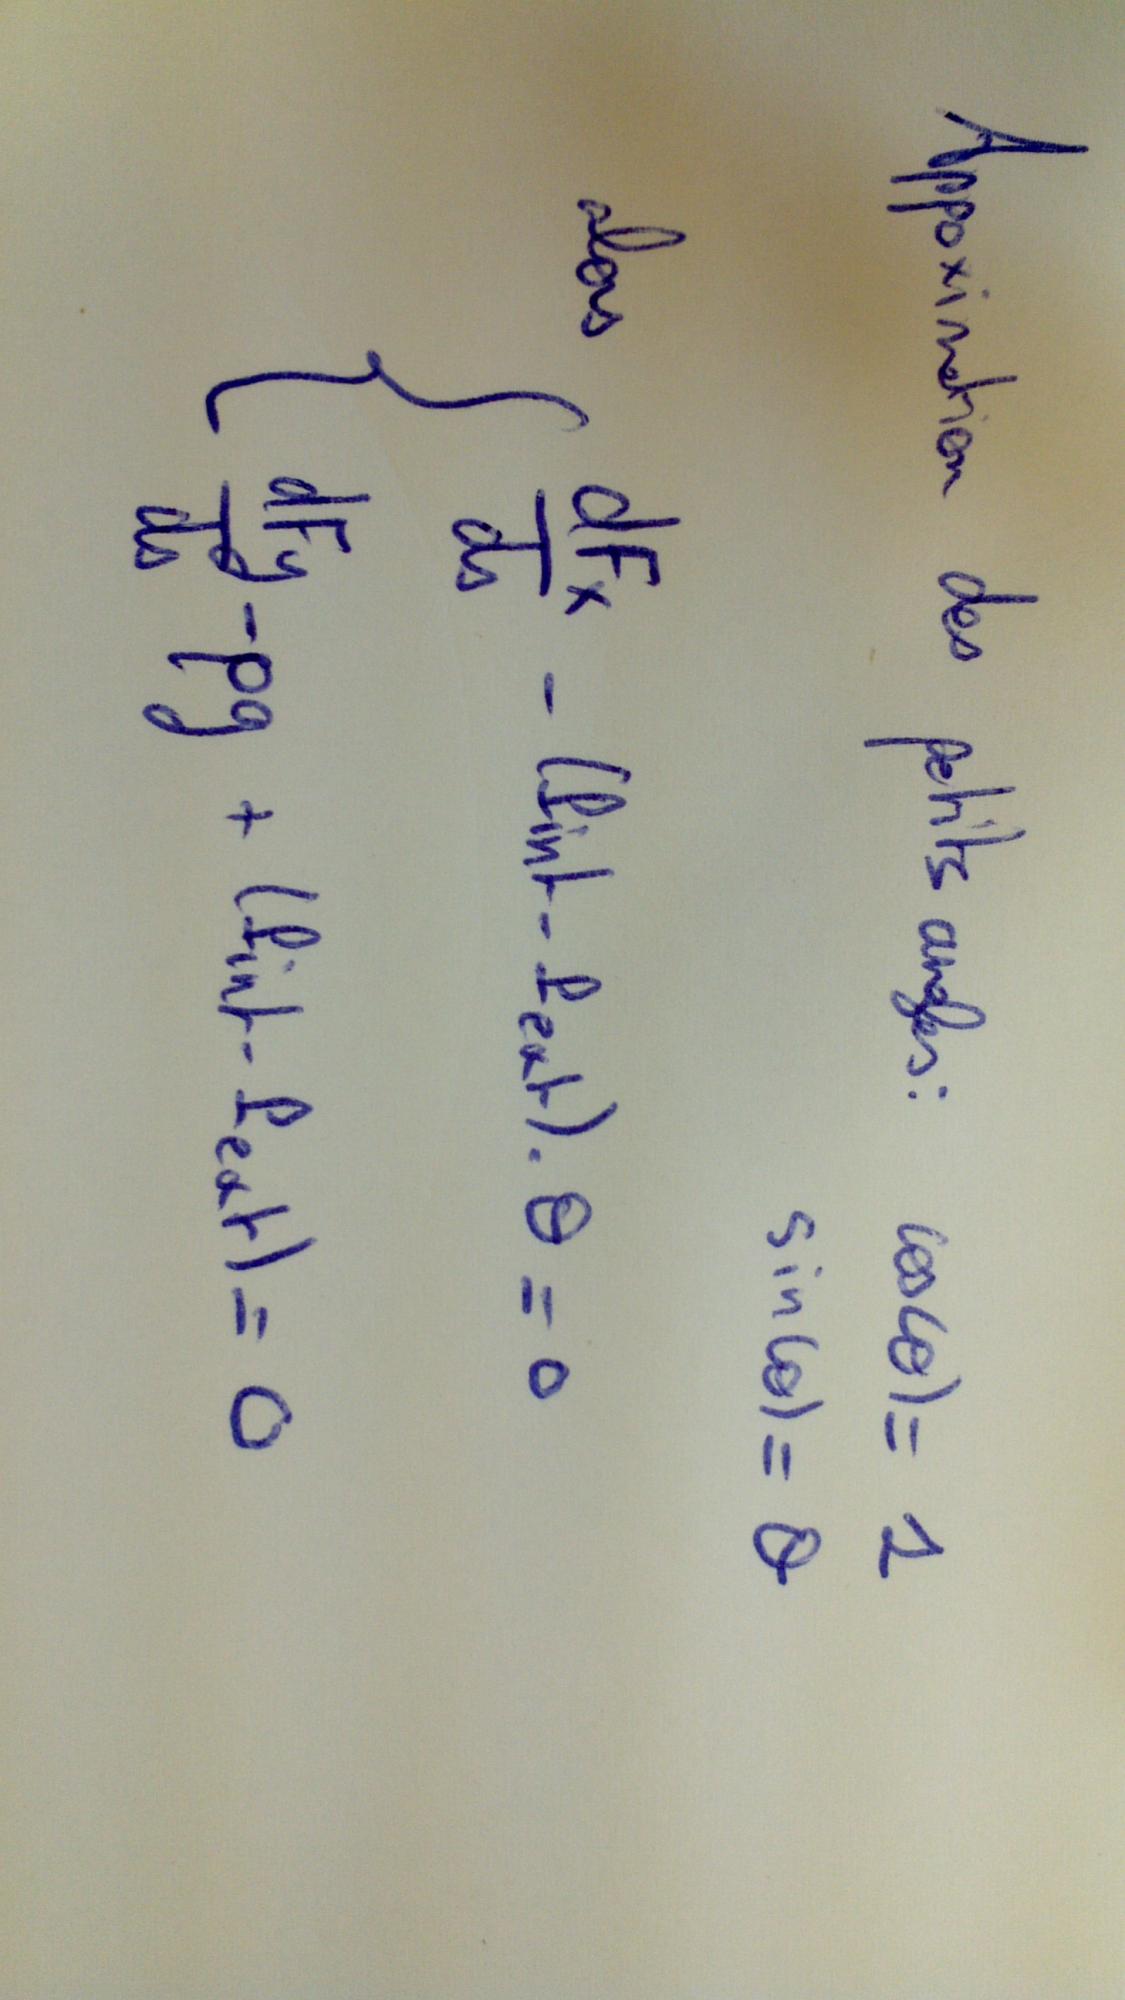 Appoximation des petits angles : cos(θ) = 1
sin(θ) = θ
alors
dFx/ds - (Pint - Pext). θ = 0
dFy/ds - ρg + (Pint - Pext) = 0